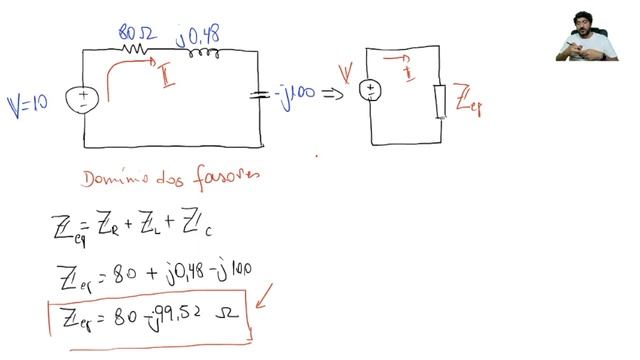 80Ω j0,48
V=10
I
-j100 ⇒
V
I
Zeq
Domínio dos fasores
Zeq = ZR + ZL + ZC
Zeq = 80 + j0,48 - j100
Zeq = 80 - j99,52 Ω